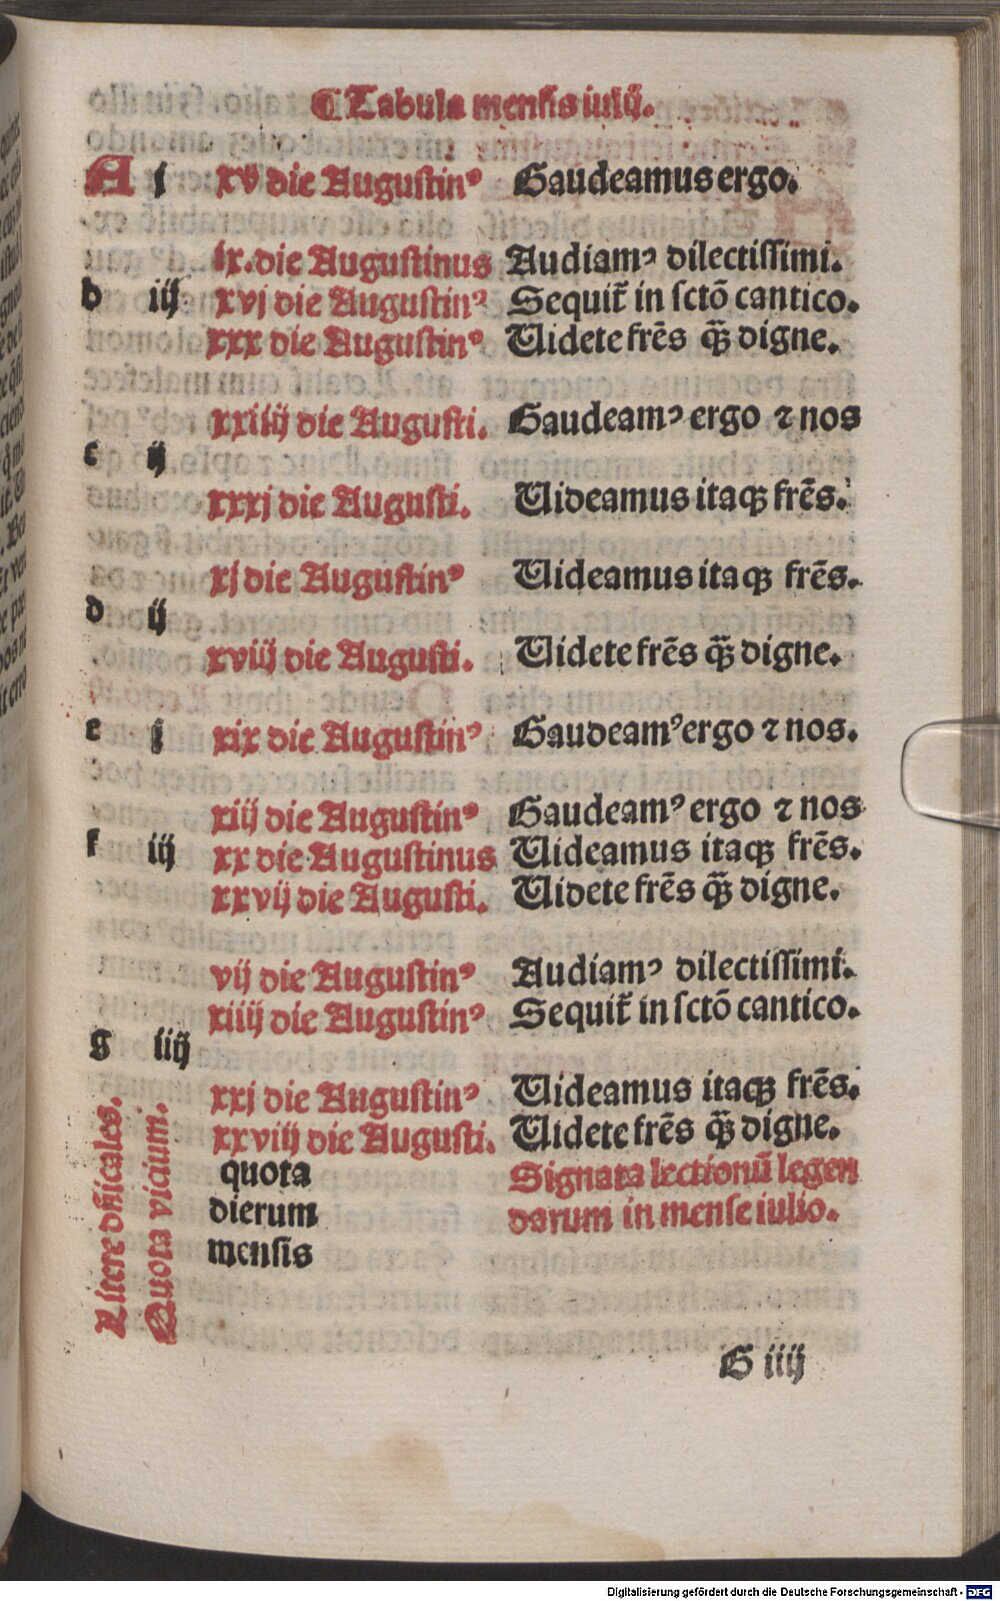 ¶ Tabula mensis iulij.
A j xv die Augustinꝰ Gaudeamus ergo.
ix.die Augustinus Audiamꝰ dilectissimi.
b iij xvj die Augustinꝰ Sequit᷑ in sctō cantico.
xxx die Augustinꝰ Uidete frēs q̄ꝫ digne.
xxiiij die Augusti. Gaudeamꝰ ergo ⁊ nos
c ij
xxxj die Augusti. Uideamus itaqꝫ frēs.
xj die Augustinꝰ Uideamus itaqꝫ frēs.
d ij
xviij die Augusti. Uidete frēs q̄ꝫ digne.
e j xix die Augustinꝰ Gaudeamꝰ ergo ⁊ nos.
xiij die Augustinꝰ Gaudeamꝰ ergo ⁊ nos
f iij xx die Augustinus Uideamus itaqꝫ frēs.
xxvij die Augusti. Uidete frēs q̄ꝫ digne.
vij die Augustinꝰ Audiamꝰ dilectissimi.
xiiij die Augustinꝰ Sequit᷑ in sctō cantico.
g iiij
xxj die Augustinꝰ Uideamus itaqꝫ frēs.
xxviij die Augusti. Uidete frēs q̄ꝫ digne.
Litere dn̄icales.
Quota vicium.
quota
dierum
mensis
Signata lectionū legen
darum in mense iulio.
G iiij
Digitalisierung gefördert durch die Deutsche Forschungsgemeinschaft - DFG